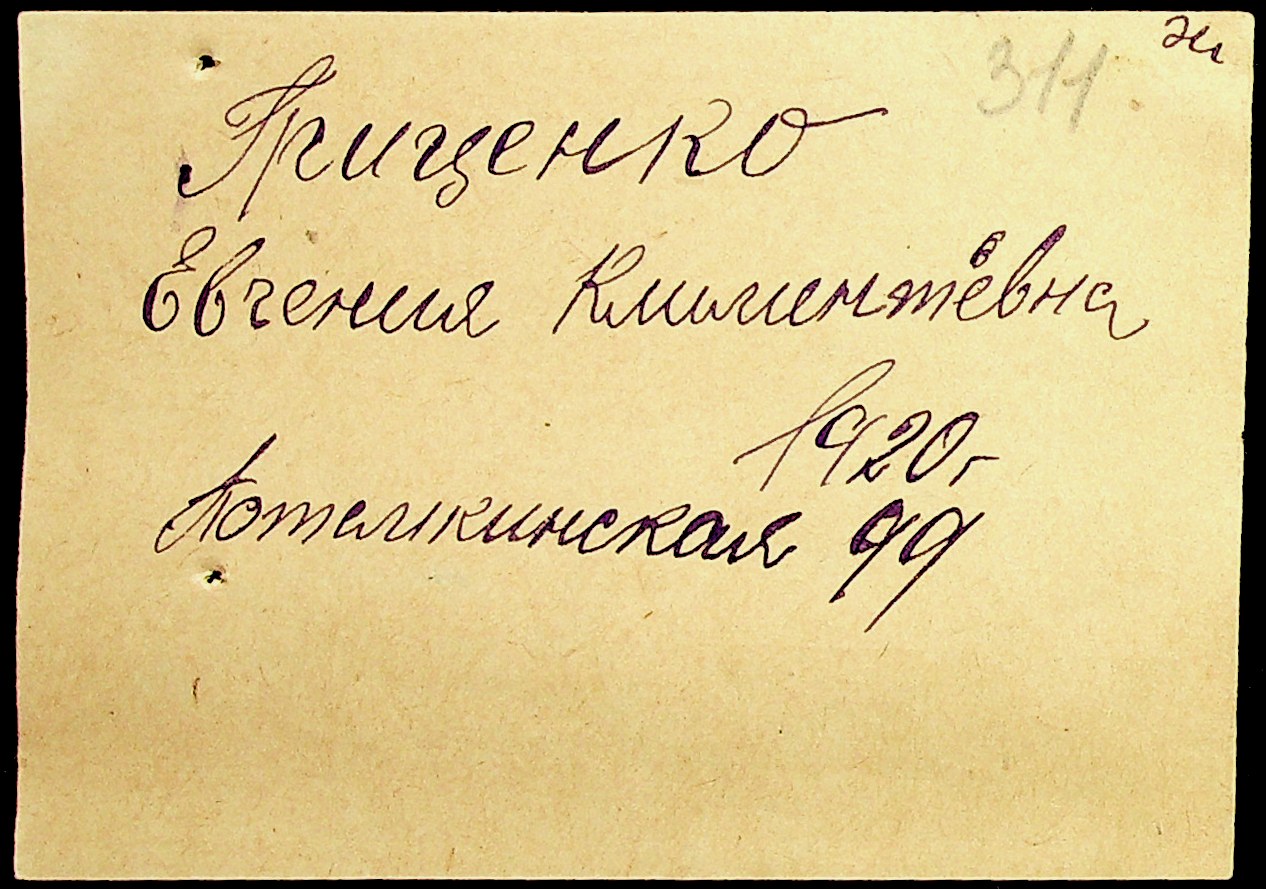 311
Грищенко
Евгения Климентьевна
1920г
Потемкинская 99